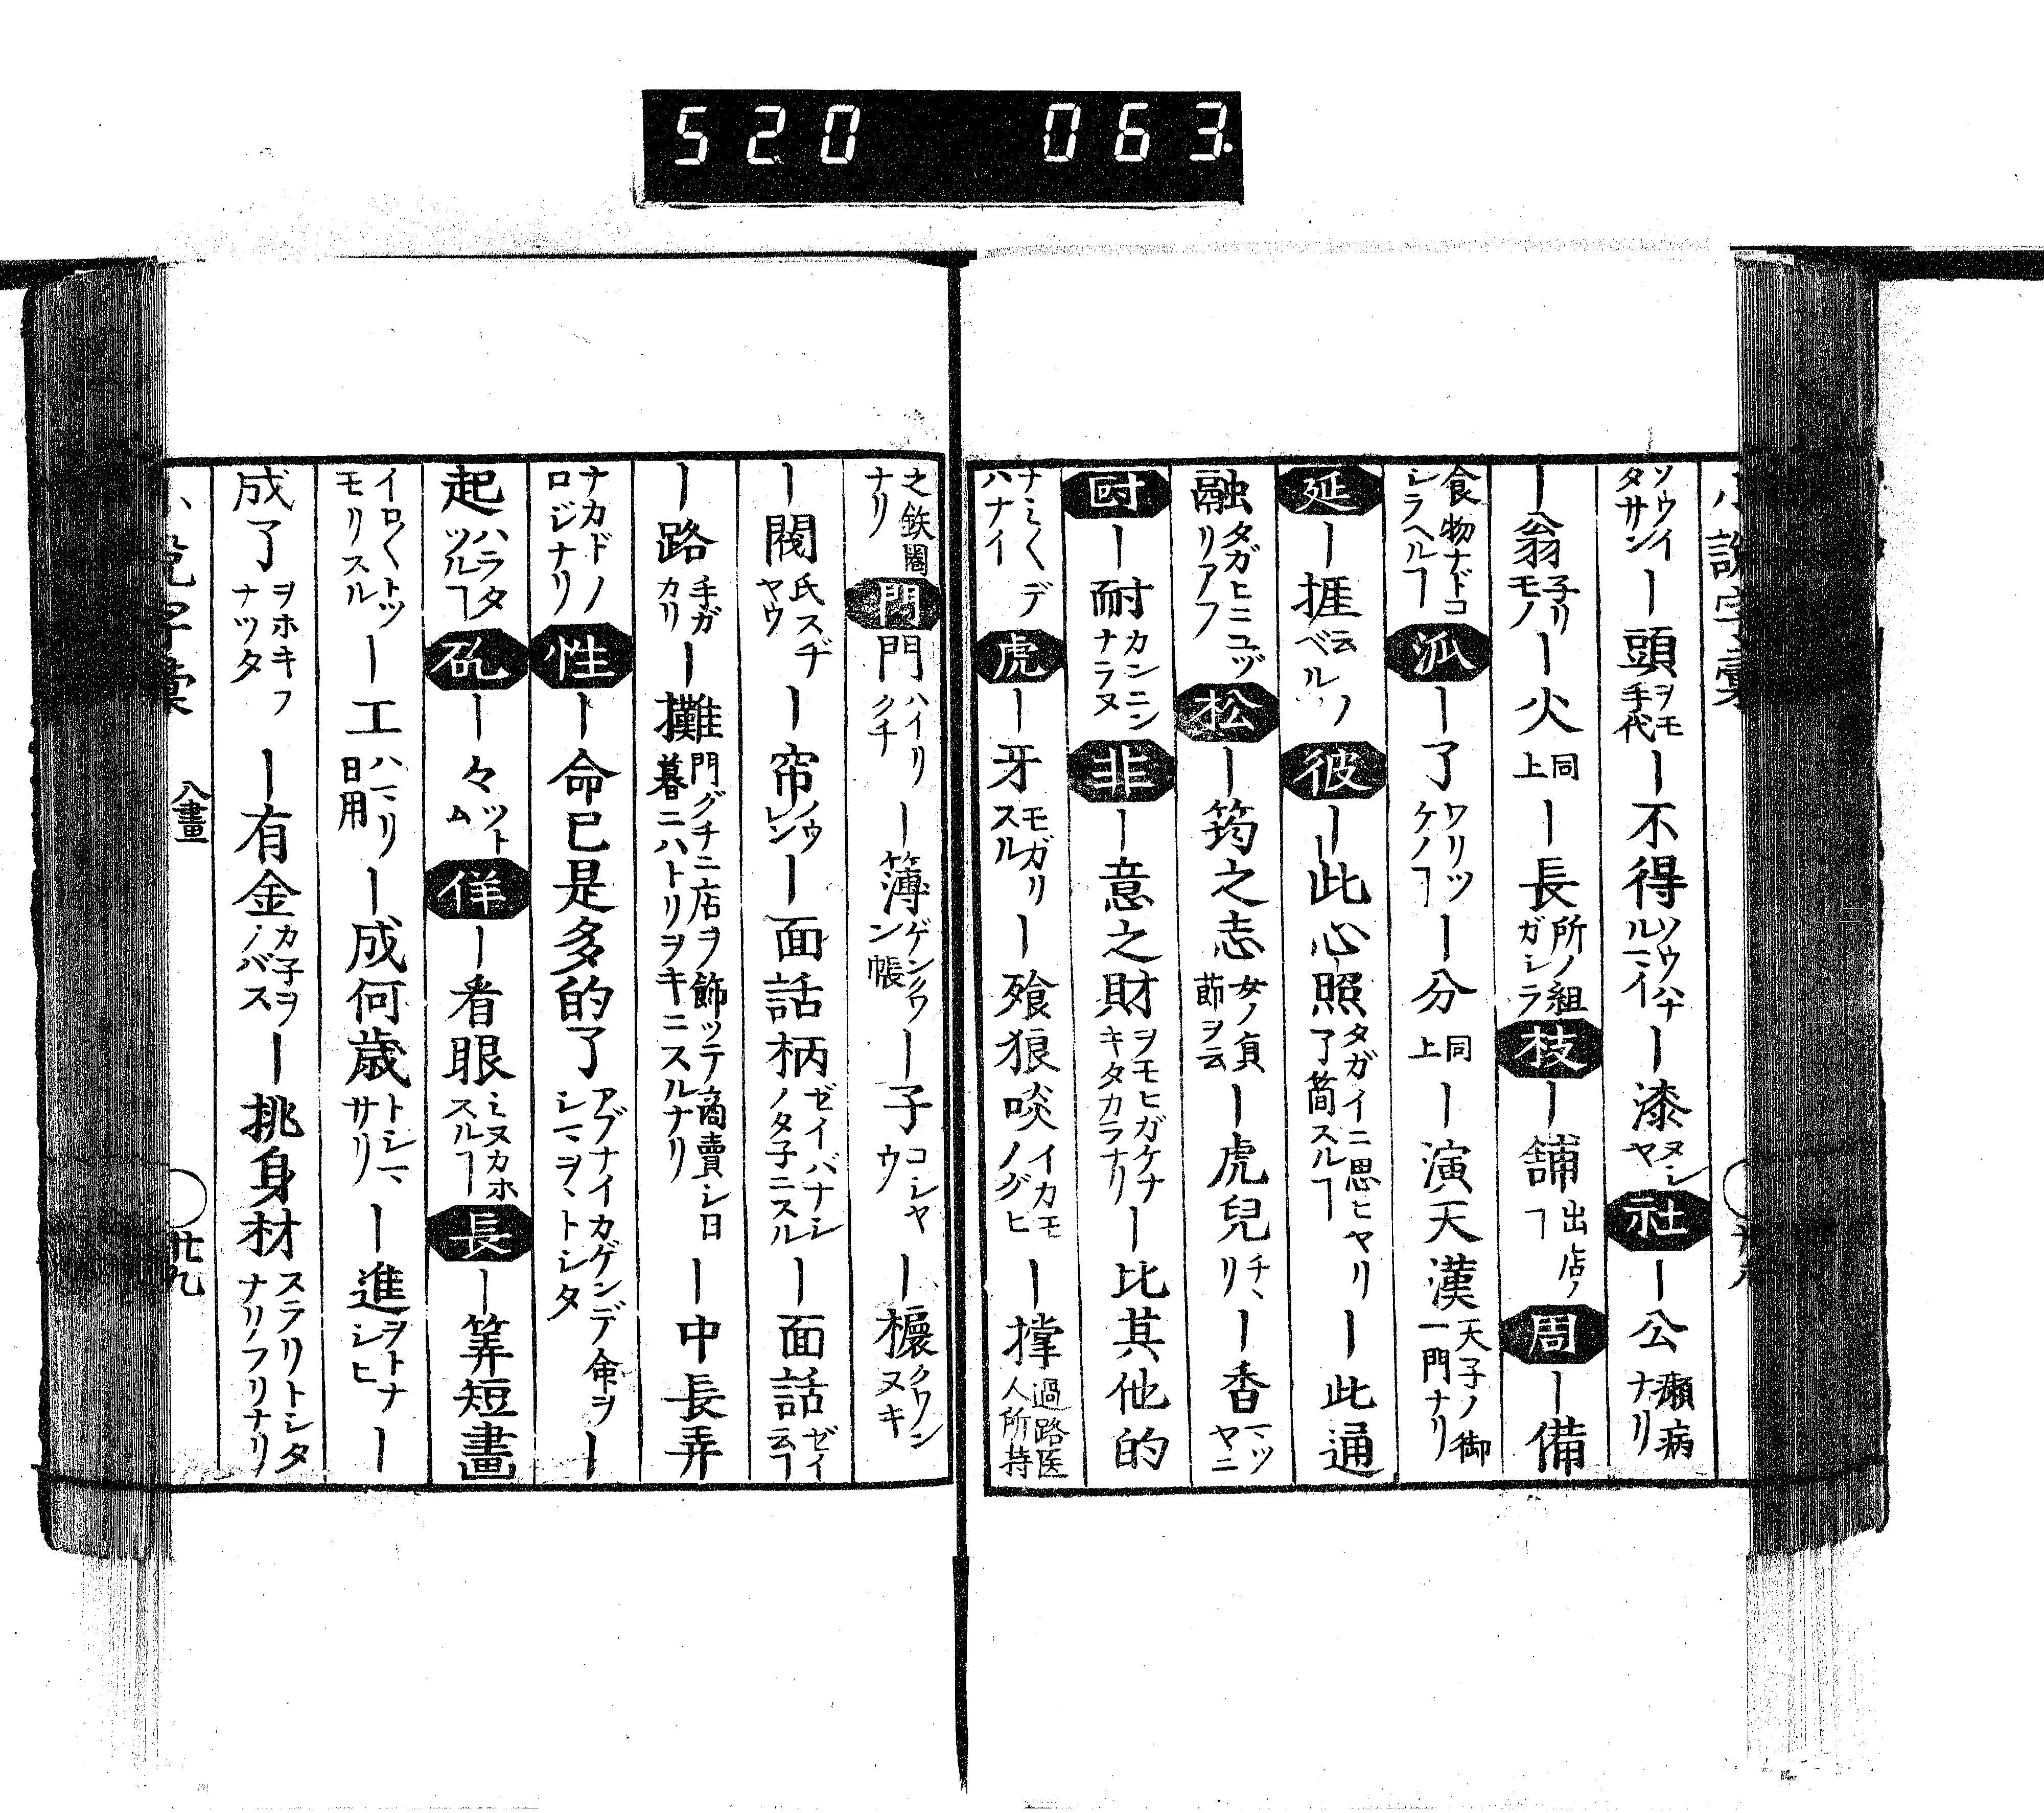 520 063.
小説字彙
ソウイタサン ー頭 ヲモ手代 ー不得 ソウハナルマイ ー漆 ヌシヤ 社 ー公 癩病ナリ
ー翁 子リモノ ー火 同上 ー長 所ノ組ガシラ 枝 ー舗 出店ノヿ 周 ー備
食物ナドコシラヘルヿ 泒 ー了 ワリツケノヿ ー分 同上 ー演天漢 天子ノ御一門ナリ
延 ー捱 云ノベル 彼 ー此心照 タガイニ思ヒヤリ了簡スルヿ ー此通
融 タガヒニユヅリアフ 松 ー筠之志 女ノ貞節ヲ云 ー虎兒 チヽリ ー香 マツヤニ
ー耐 カンニンナラヌ 非 ー意之財 ヲモヒガケナキタカラナリ ー比其他的
ナミ〳〵デハナイ 虎 ー牙 モガリスル ー飱狼啖 イカモノグヒ ー撑 過路医人所持
之鉄閣ナリ 門 門 ハイリクチ ー簿 ゲンクワン帳 ー子 コシヤウ ー櫦 クワンヌキ
ー閥 氏スヂヤウ ー帘 ノウレン ー面話柄 ゼイバナシノタ子ニスル ー面話 ゼイ云ヿ
ー路 手ガカリ ー攤 門グチニ店ヲ飾ッテ商賣シ日暮ニハトリヲキニスルナリ ー中長弄
ナカドノロジナリ 性 ー命已是多的了 アブナイカゲンデ命ヲシマヲヽトシタ ー
起 ハラタツルヿ 矹 ー々 ツットム 佯 ー看眼 ミヌカホスルヿ 長 ー筭短畫
イロ〳〵トツモリスル ー工 ハマリ日用 ー成何歳 トシマサリ ー進 ヲトナシヒ ー
成了 ヲホキフナツタ ー有金 カ子ヲノバス ー挑身材 スラリトシタナリノフリナリ
小説字彙 八畫 廿九